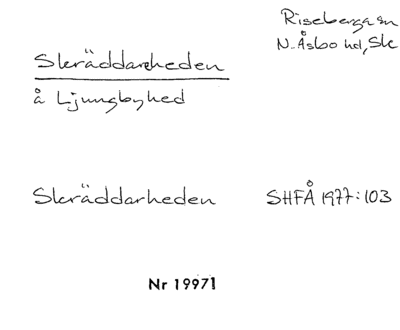 Riseberga sn
N. Åsbo hd, Sk
Skräddareheden
å Ljungbyhed
Skräddarheden SHFÅ 1977:103
Nr 19971